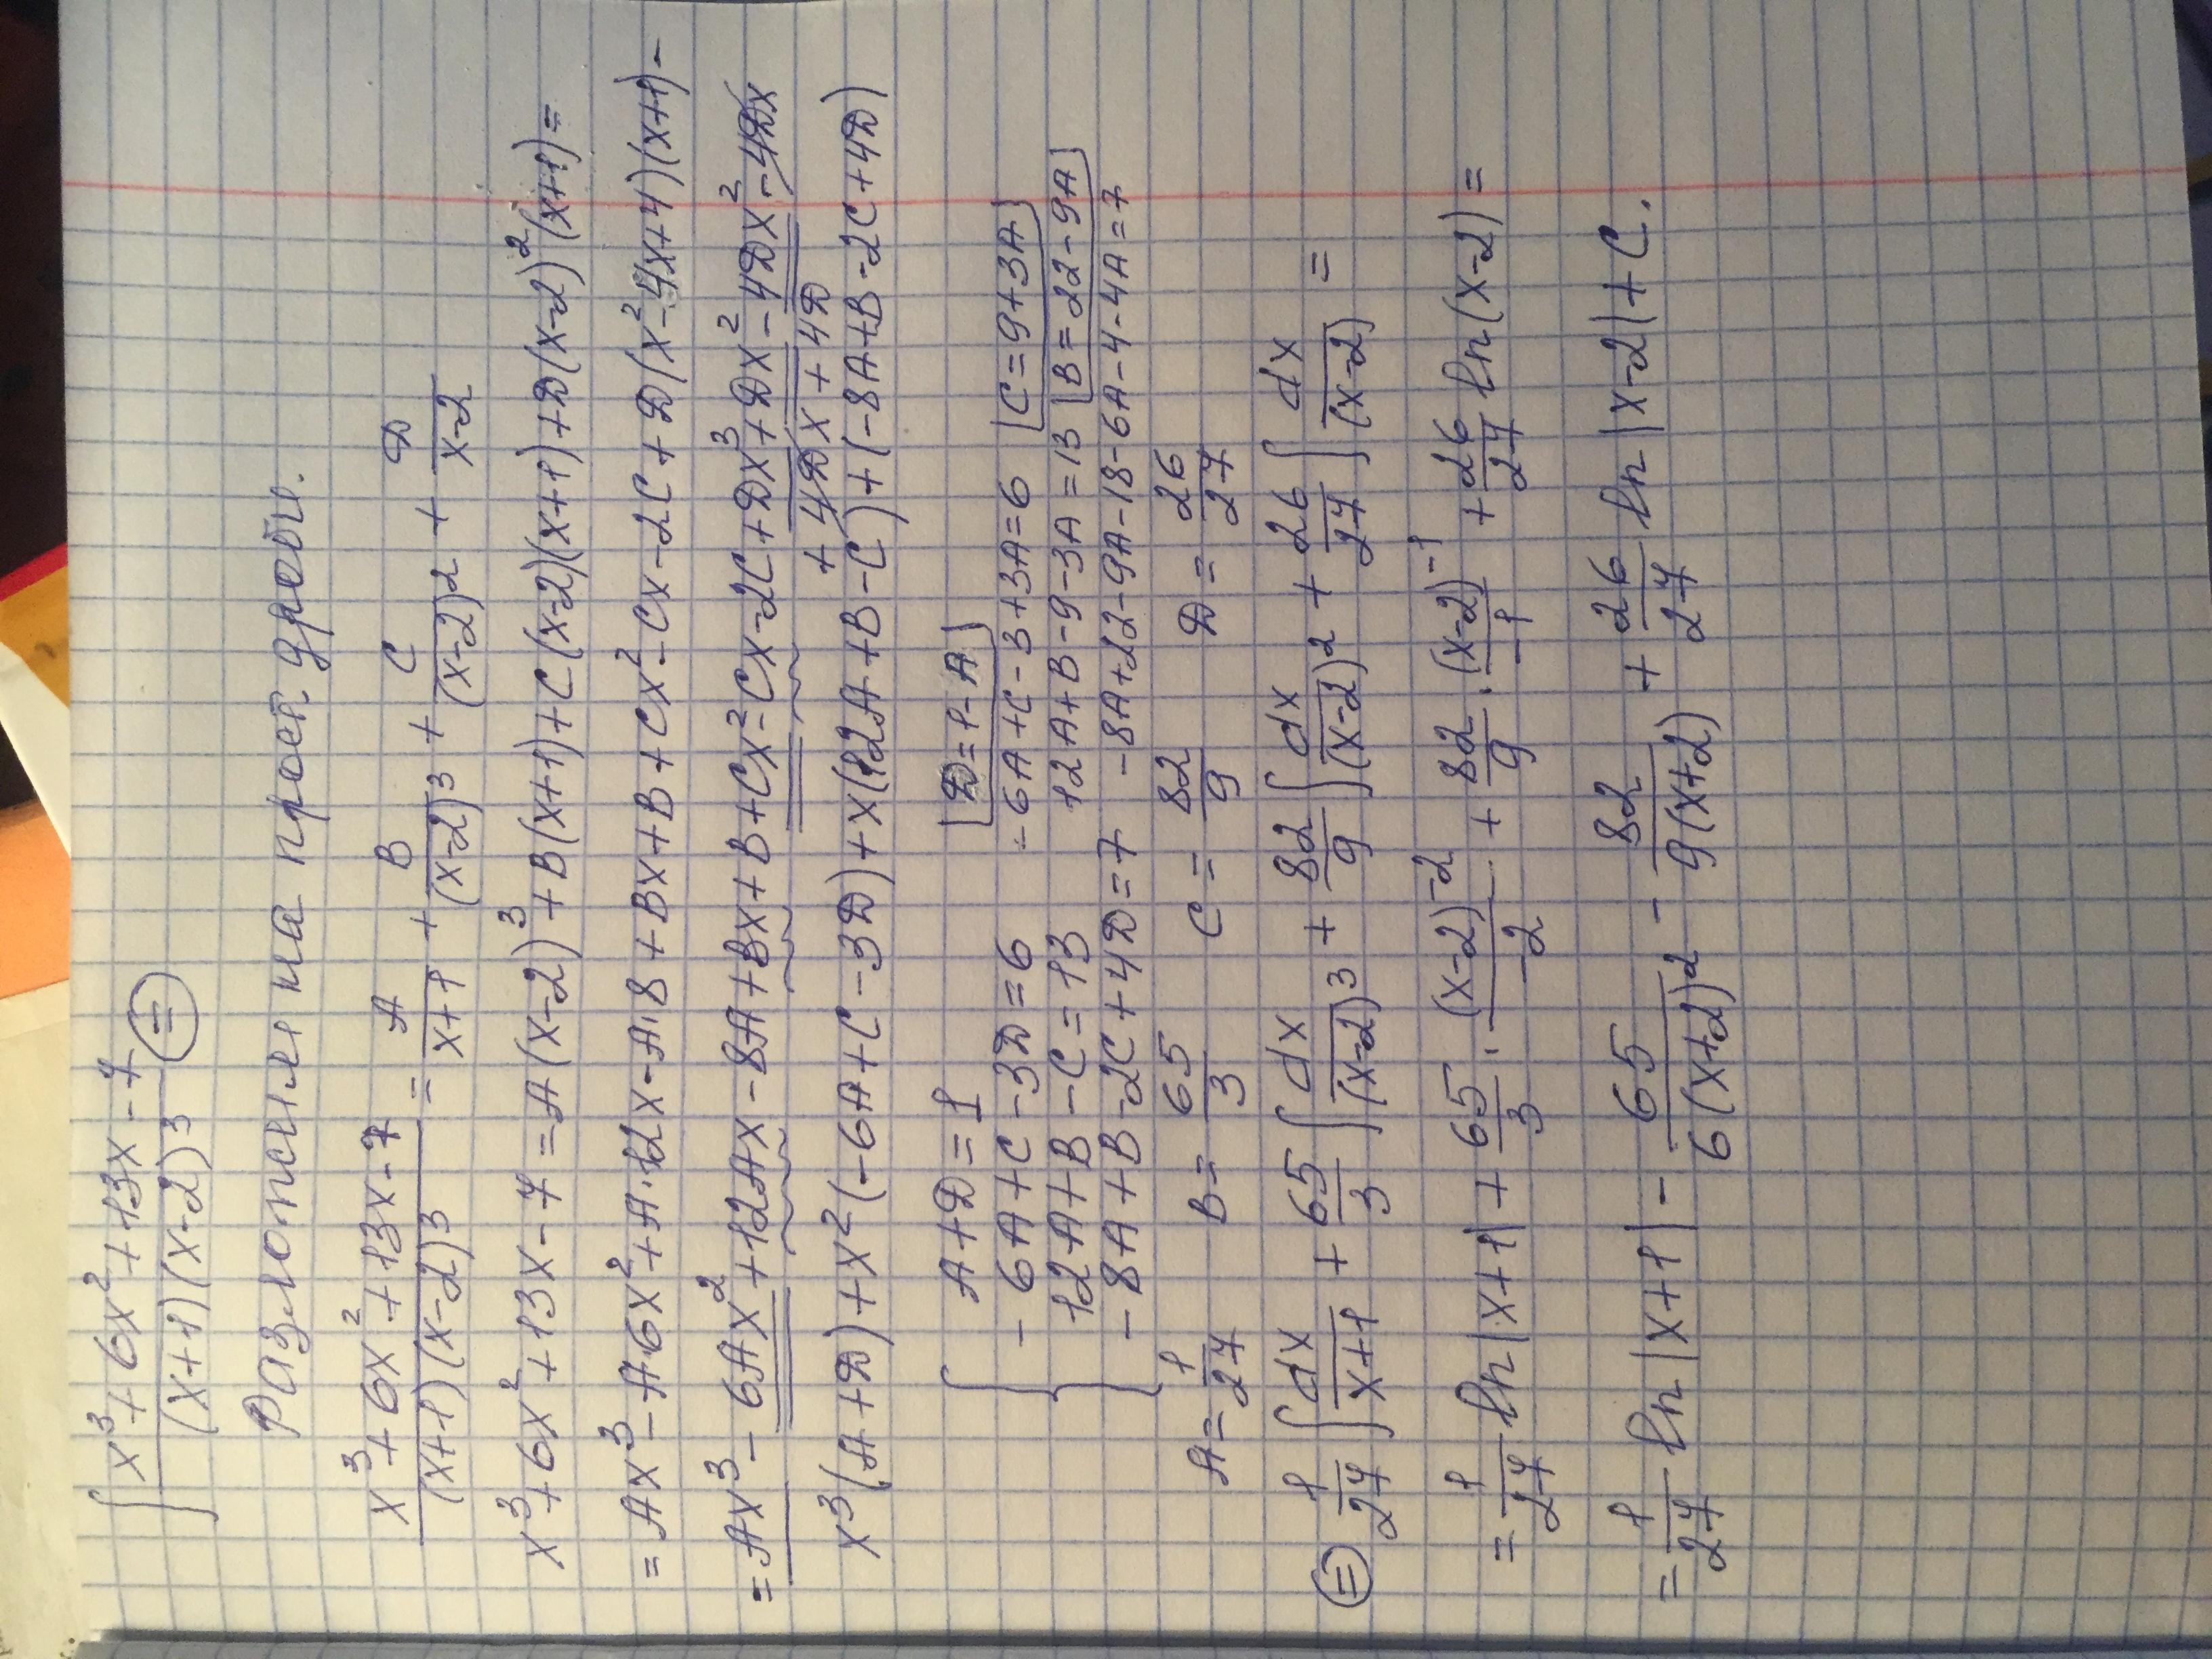 ∫ (x³+6x²+13x-7)/((x+1)(x-2)³) ⊜
Разложим на прост. дроби.
(x³+6x²+13x-7)/((x+1)(x-2)³) = A/(x+1) + B/(x-2)³ + C/(x-2)² + D/(x-2)
x³+6x²+13x-7 = A(x-2)³+B(x+1)+C(x-2)(x+1)+D(x-2)²(x+1)=
= Ax³-A·6x²+A·12x-A·8+Bx+B+Cx²-Cx-2C+D(x²-4x+4)(x+1)-
= Ax³-6Ax²+12Ax-8A+Bx+B+Cx²-Cx-2C+Dx³+Dx²-4Dx²-4Dx
+4Dx+4D
x³(A+D)+x²(-6A+C-3D)+x(12A+B-C)+(-8A+B-2C+4D)
A+D=1 D=1-A
-6A+C-3D=6 -6A+C-3+3A=6 C=9+3A
12A+B-C=13 12A+B-9-3A=13 B=22-9A
-8A+B-2C+4D=7 -8A+22-9A-18-6A-4-4A=7
A=1/27 B=65/3 C=82/9 D=26/27
⊜ 1/27 ∫ dx/(x+1) + 65/3 ∫ dx/(x-2)³ + 82/9 ∫ dx/(x-2)² + 26/27 ∫ dx/(x-2) =
= 1/27 ln|x+1| + 65/3 · (x-2)⁻²/-2 + 82/9 · (x-2)⁻¹/-1 + 26/27 ln(x-2) =
= 1/27 ln|x+1| - 65/6(x+2)² - 82/9(x+2) + 26/27 ln|x-2|+C.